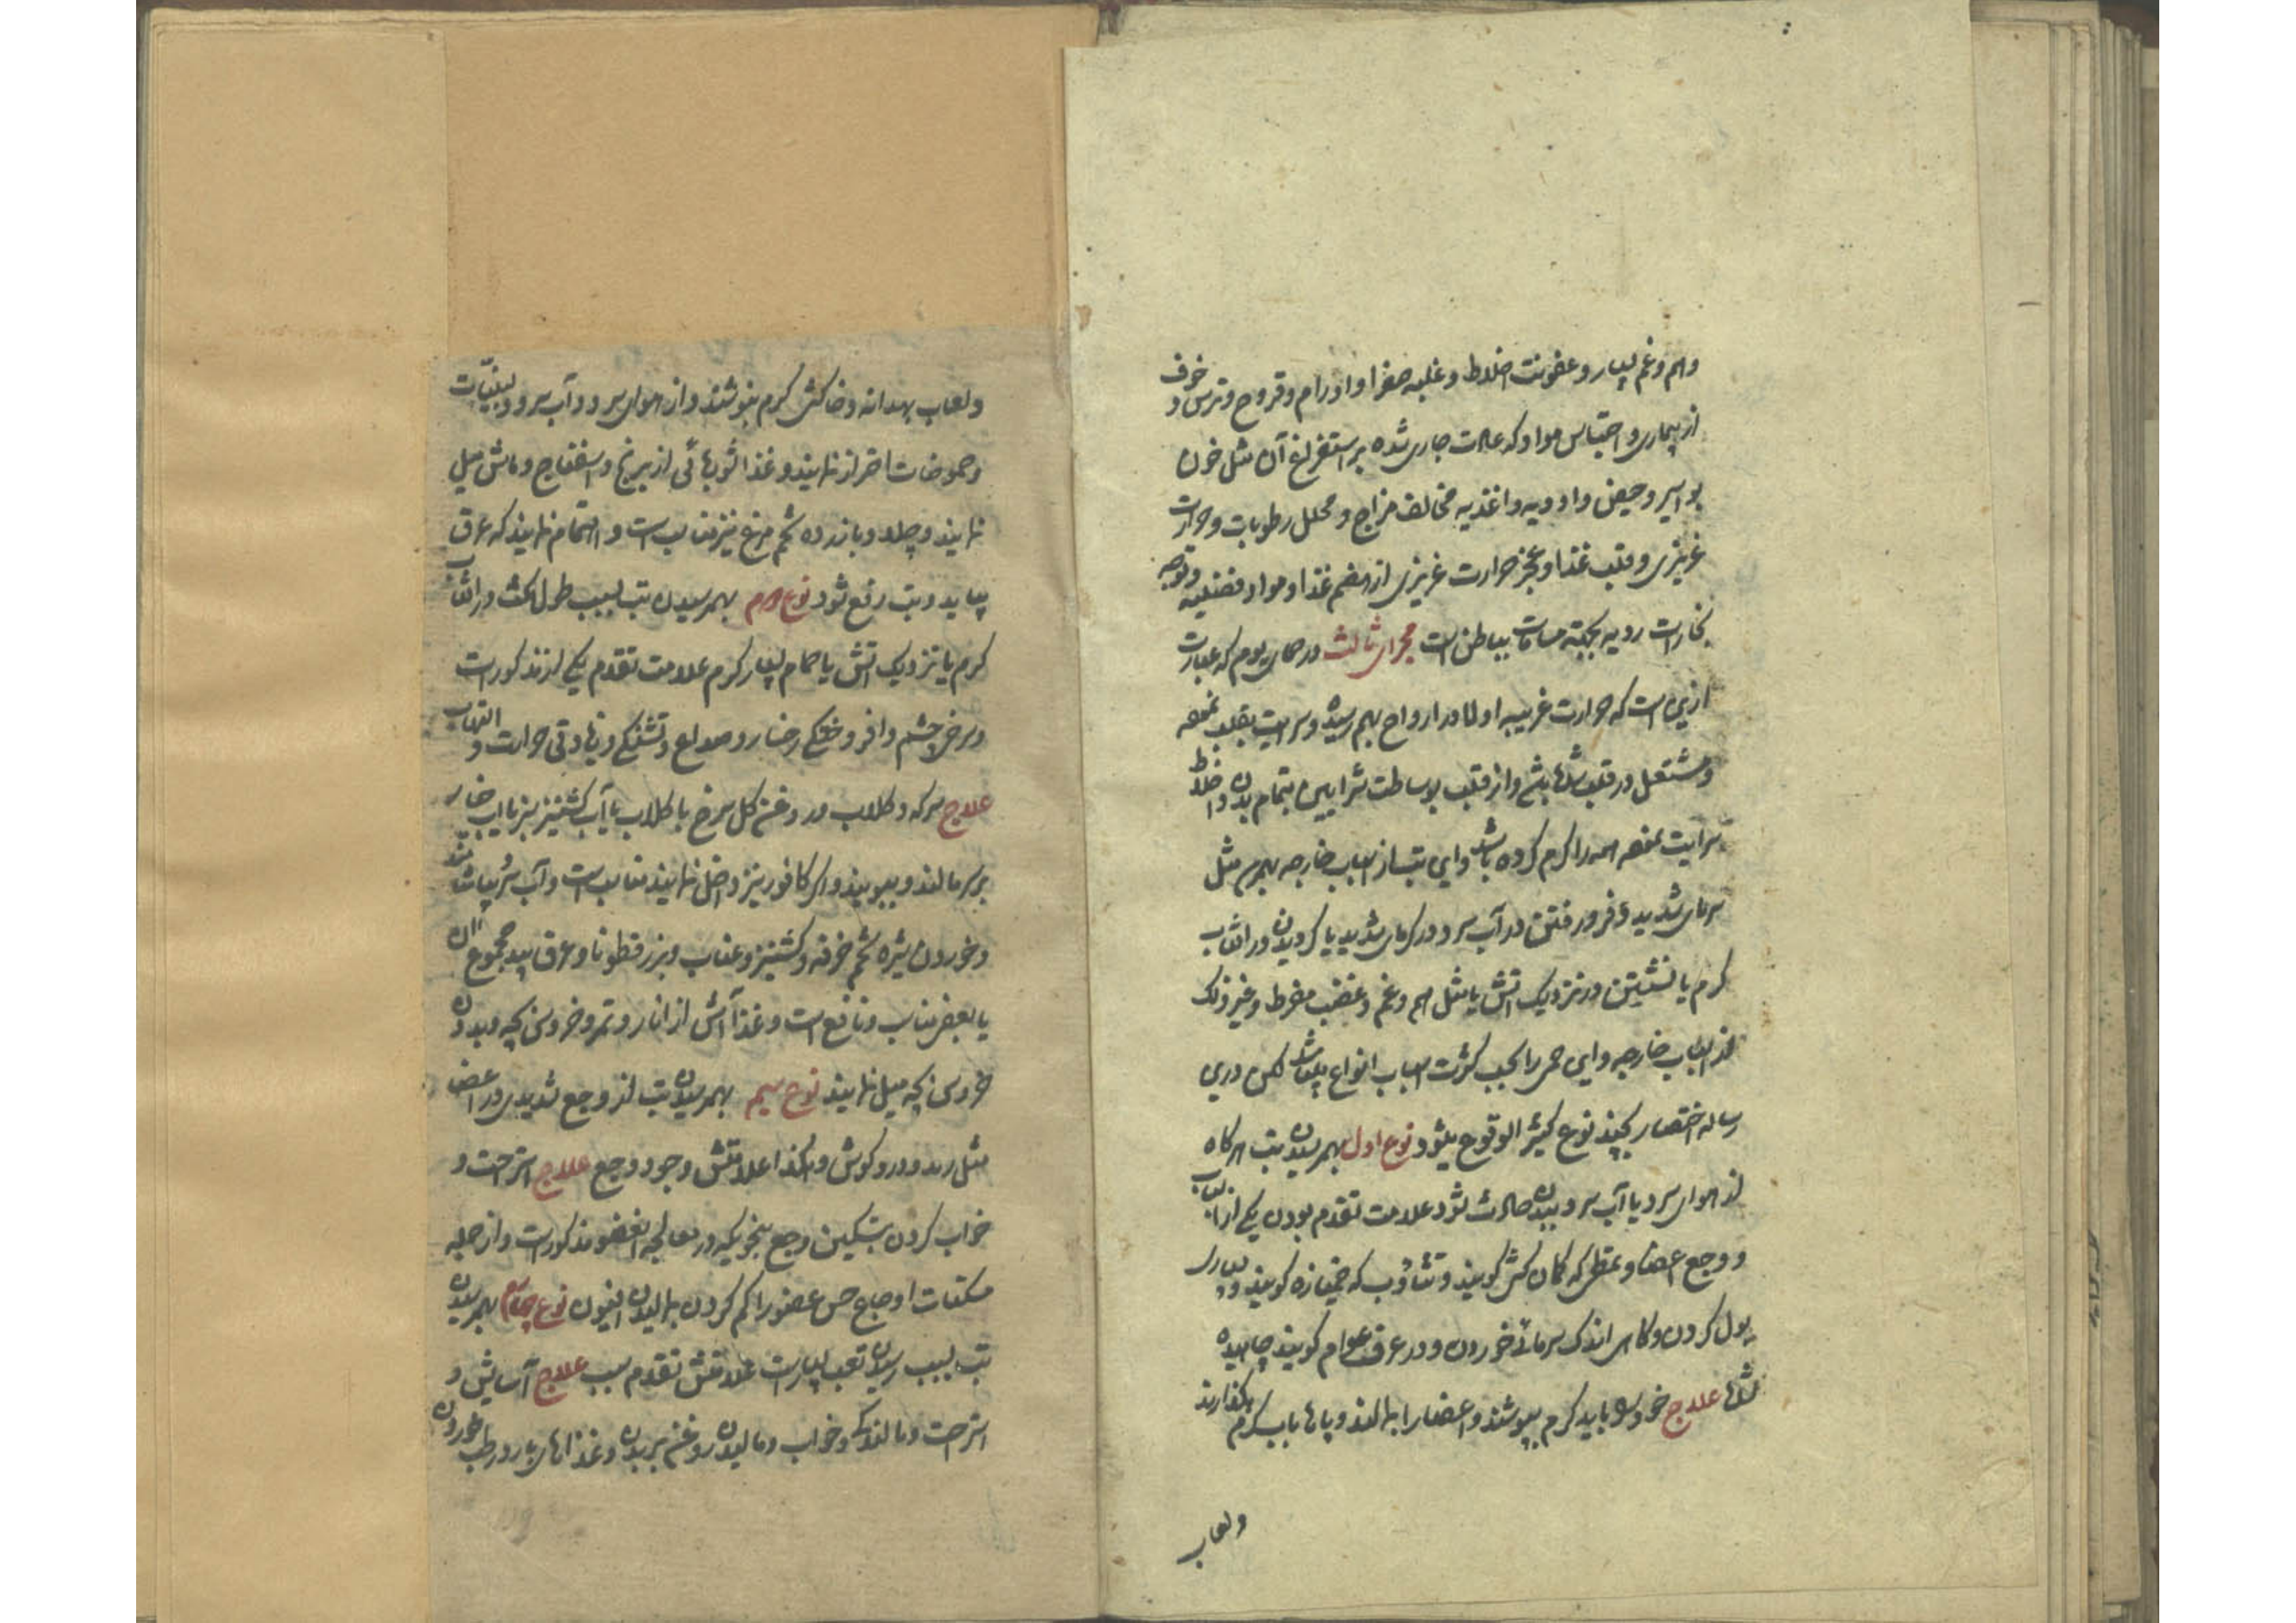 وهم و غم بسیار و عفونت اخلاط و غلبه صفرا و اورام و قروح و ترس و خوف
از بیماری و احتباس مواد که عادت جاری شده بر استفراغ آن مثل خون
بواسیر و حیض و ادویه و اغذیه مخالف مزاج و محلل رطوبات و حرارت
غریزی و قلت غذا و عجز حرارت غریزی از هضم غذا و مواد فضلیه و توجه
بخارات ردیه بجهة مسامات بباطن است مجرای ثالث در حمای یوم که عبارت
از تبی است که حرارت غریبه اولا در ارواح بهم رسیده و سرایت بقلب نموده
و مشتعل در قلب شده باشد و از قلب بوساطت شرایین بتمام بدن و اخلاط
سرایت نموده همه را گرم کرده باشد و این تب از اسباب خارجه بهمرسد مثل
سرمای شدید و فرو رفتن در آب سرد و در گرمای شدید یا گردیدن در افتاب
گرم یا نشستن در نزدیک اتش یا مثل هم و غم و غضب مفرط و غیر ذلک
از اسباب خارجه و این حمی را بحسب کثرت اسباب انواع بسیار باشد لکن درین
رساله اختصار بچند نوع کثیر الوقوع میشود نوع اول بهمرسیدن تب هرگاه
از هوای سرد یا آب سرد ببدن حادث شود علامت تقدم بودن یکی از اسباب
و وجع اعضا و تمطی که کمان کش گویند و تثاؤب که خمیازه گویند و بسیاری
بول کردن و گاهی اندک سرمائی خوردن و در عرف عوام گویند چاهیده
شده علاج خود را باید گرم بپوشند و اعضا را بمالند و پاها باب گرم بگذارند
ولعاب
ولعاب بهدانه و خاکشی گرم بنوشند و از هوای سرد و آب سرد و لبنیّات
و حموضات احتراز نمایند و غذا شورباهائی از برنج و اسفناج و ماش میل
نمایند و چلاو با زرده تخم مرغ نیز مناسب است و اهتمام نمایند که عرق
بیاید و تب رفع شود نوع دوم بهمرسیدن تب بسبب طول مکث در افتاب
گرم یا نزدیک اتش یا حمام بسیار گرم علامت تقدم یکی از مذکورات
و سرخی چشم و افروختگی رخسار و صداع و تشنگی و زیادتی حرارت و التهاب
علاج سرکه و گلاب و روغن گل سرخ با گلاب یا آب گشنیز سبز یا آب خیار
بر سر مالند و ببویند و اگر کافور نیز داخل نمایند مناسب است و آب سرد بپاشند
و خوردن شیره تخم خرفه و گشنیز و عناب و بزرقطونا و عرق بید مجموع ان
یا بعضی مناسب و نافع است و غذا آش از انار و تمر و خروس بچه و بدون
خروس بچه میل نمایند نوع سیم بهمرسیدن تب از وجع شدیدی در اعضا
مثل رمد و درد گوش و هکذا علامتش وجود وجع علاج استراحت و
خواب کردن و تسکین وجع بنحویکه در معالجه انعضو مذکور است و از جمله
مسکنات اوجاع حس عضو را کم کردن بمالیدن افیون نوع چهارم بهمرسیدن
تب بسبب رسیدن تعب بسیار است علامتش تقدم سبب علاج آسایش و
استراحت و مالیدن و خواب و مالیدن روغن بر بدن و غذاهای بارد رطب خوردن